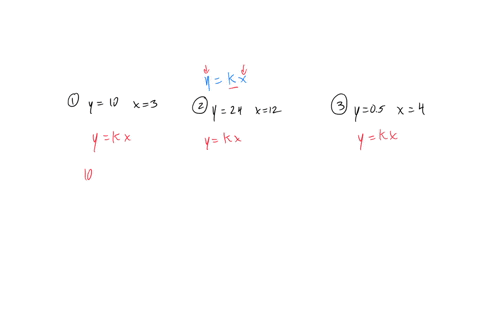 y = kx
① y = 10 x = 3
② y = 24 x = 12
③ y = 0.5 x = 4
y = kx
y = kx
y = kx
10